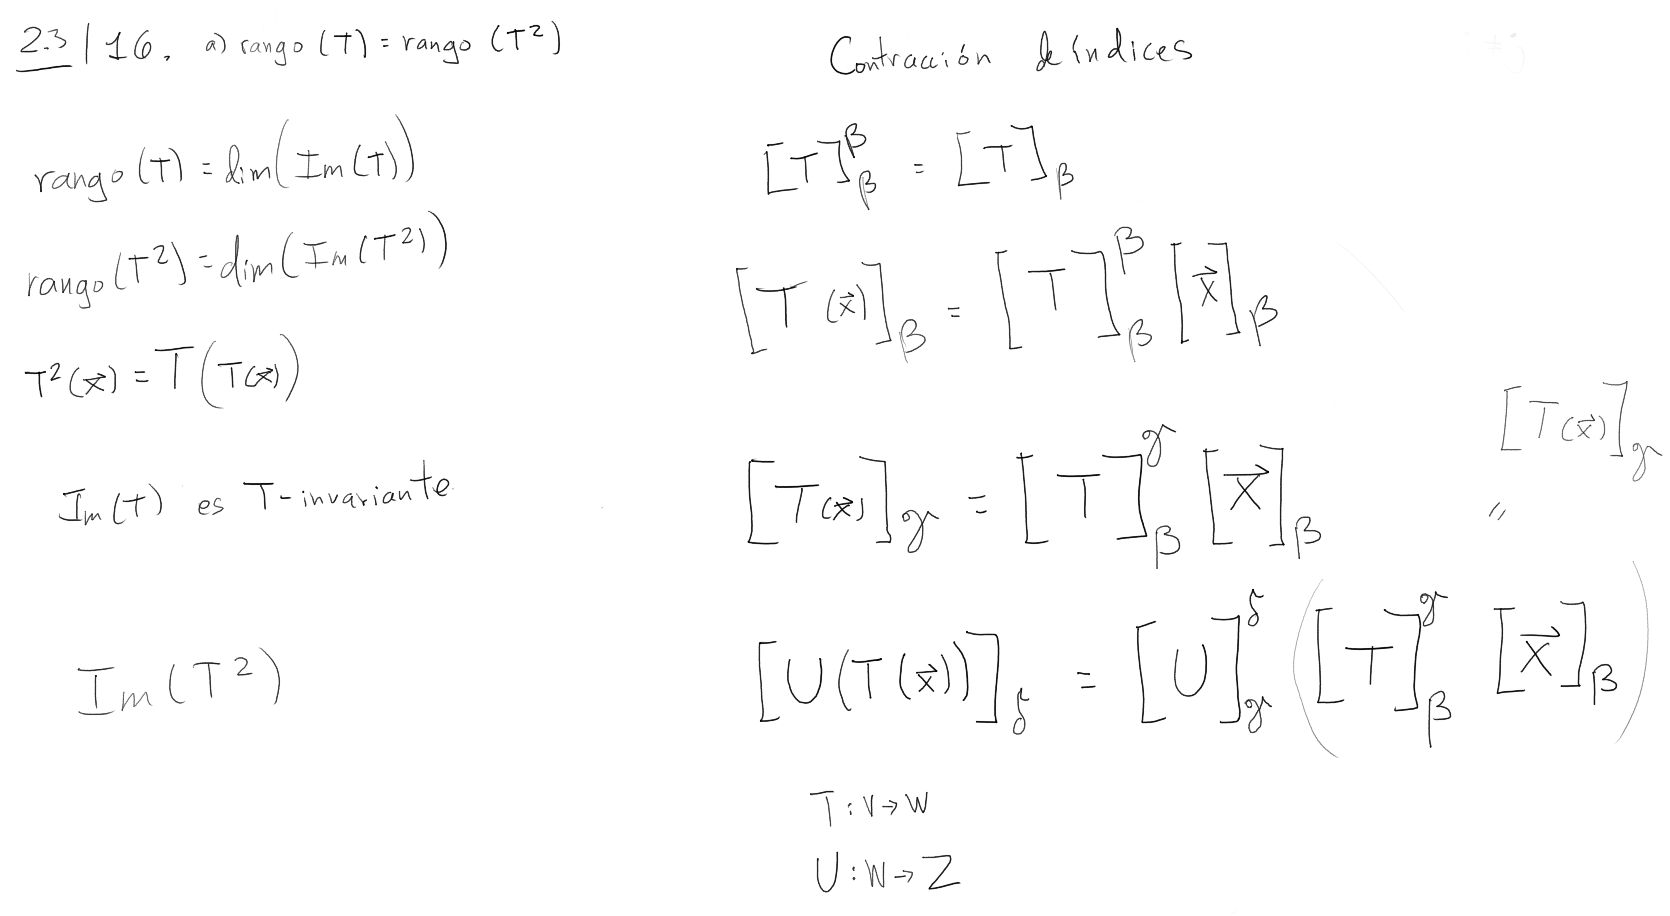 2.3 | 16. a) rango (T) = rango (T²)
rango (T) = dim(Im(T))
rango (T²) = dim(Im(T²))
T²(x⃗) = T(T(x⃗))
Im(T) es T-invariante
Im(T²)
Contracción de índices
[T]_β^β = [T]_β
[T(x⃗)]_β = [T]_β^β [x⃗]_β
[T(x⃗)]_γ = [T]_β^γ [x⃗]_β
[T(x⃗)]_γ
"
[U(T(x⃗))]_δ = [U]_γ^δ ([T]_β^γ [x⃗]_β)
T : V → W
U : W → Z